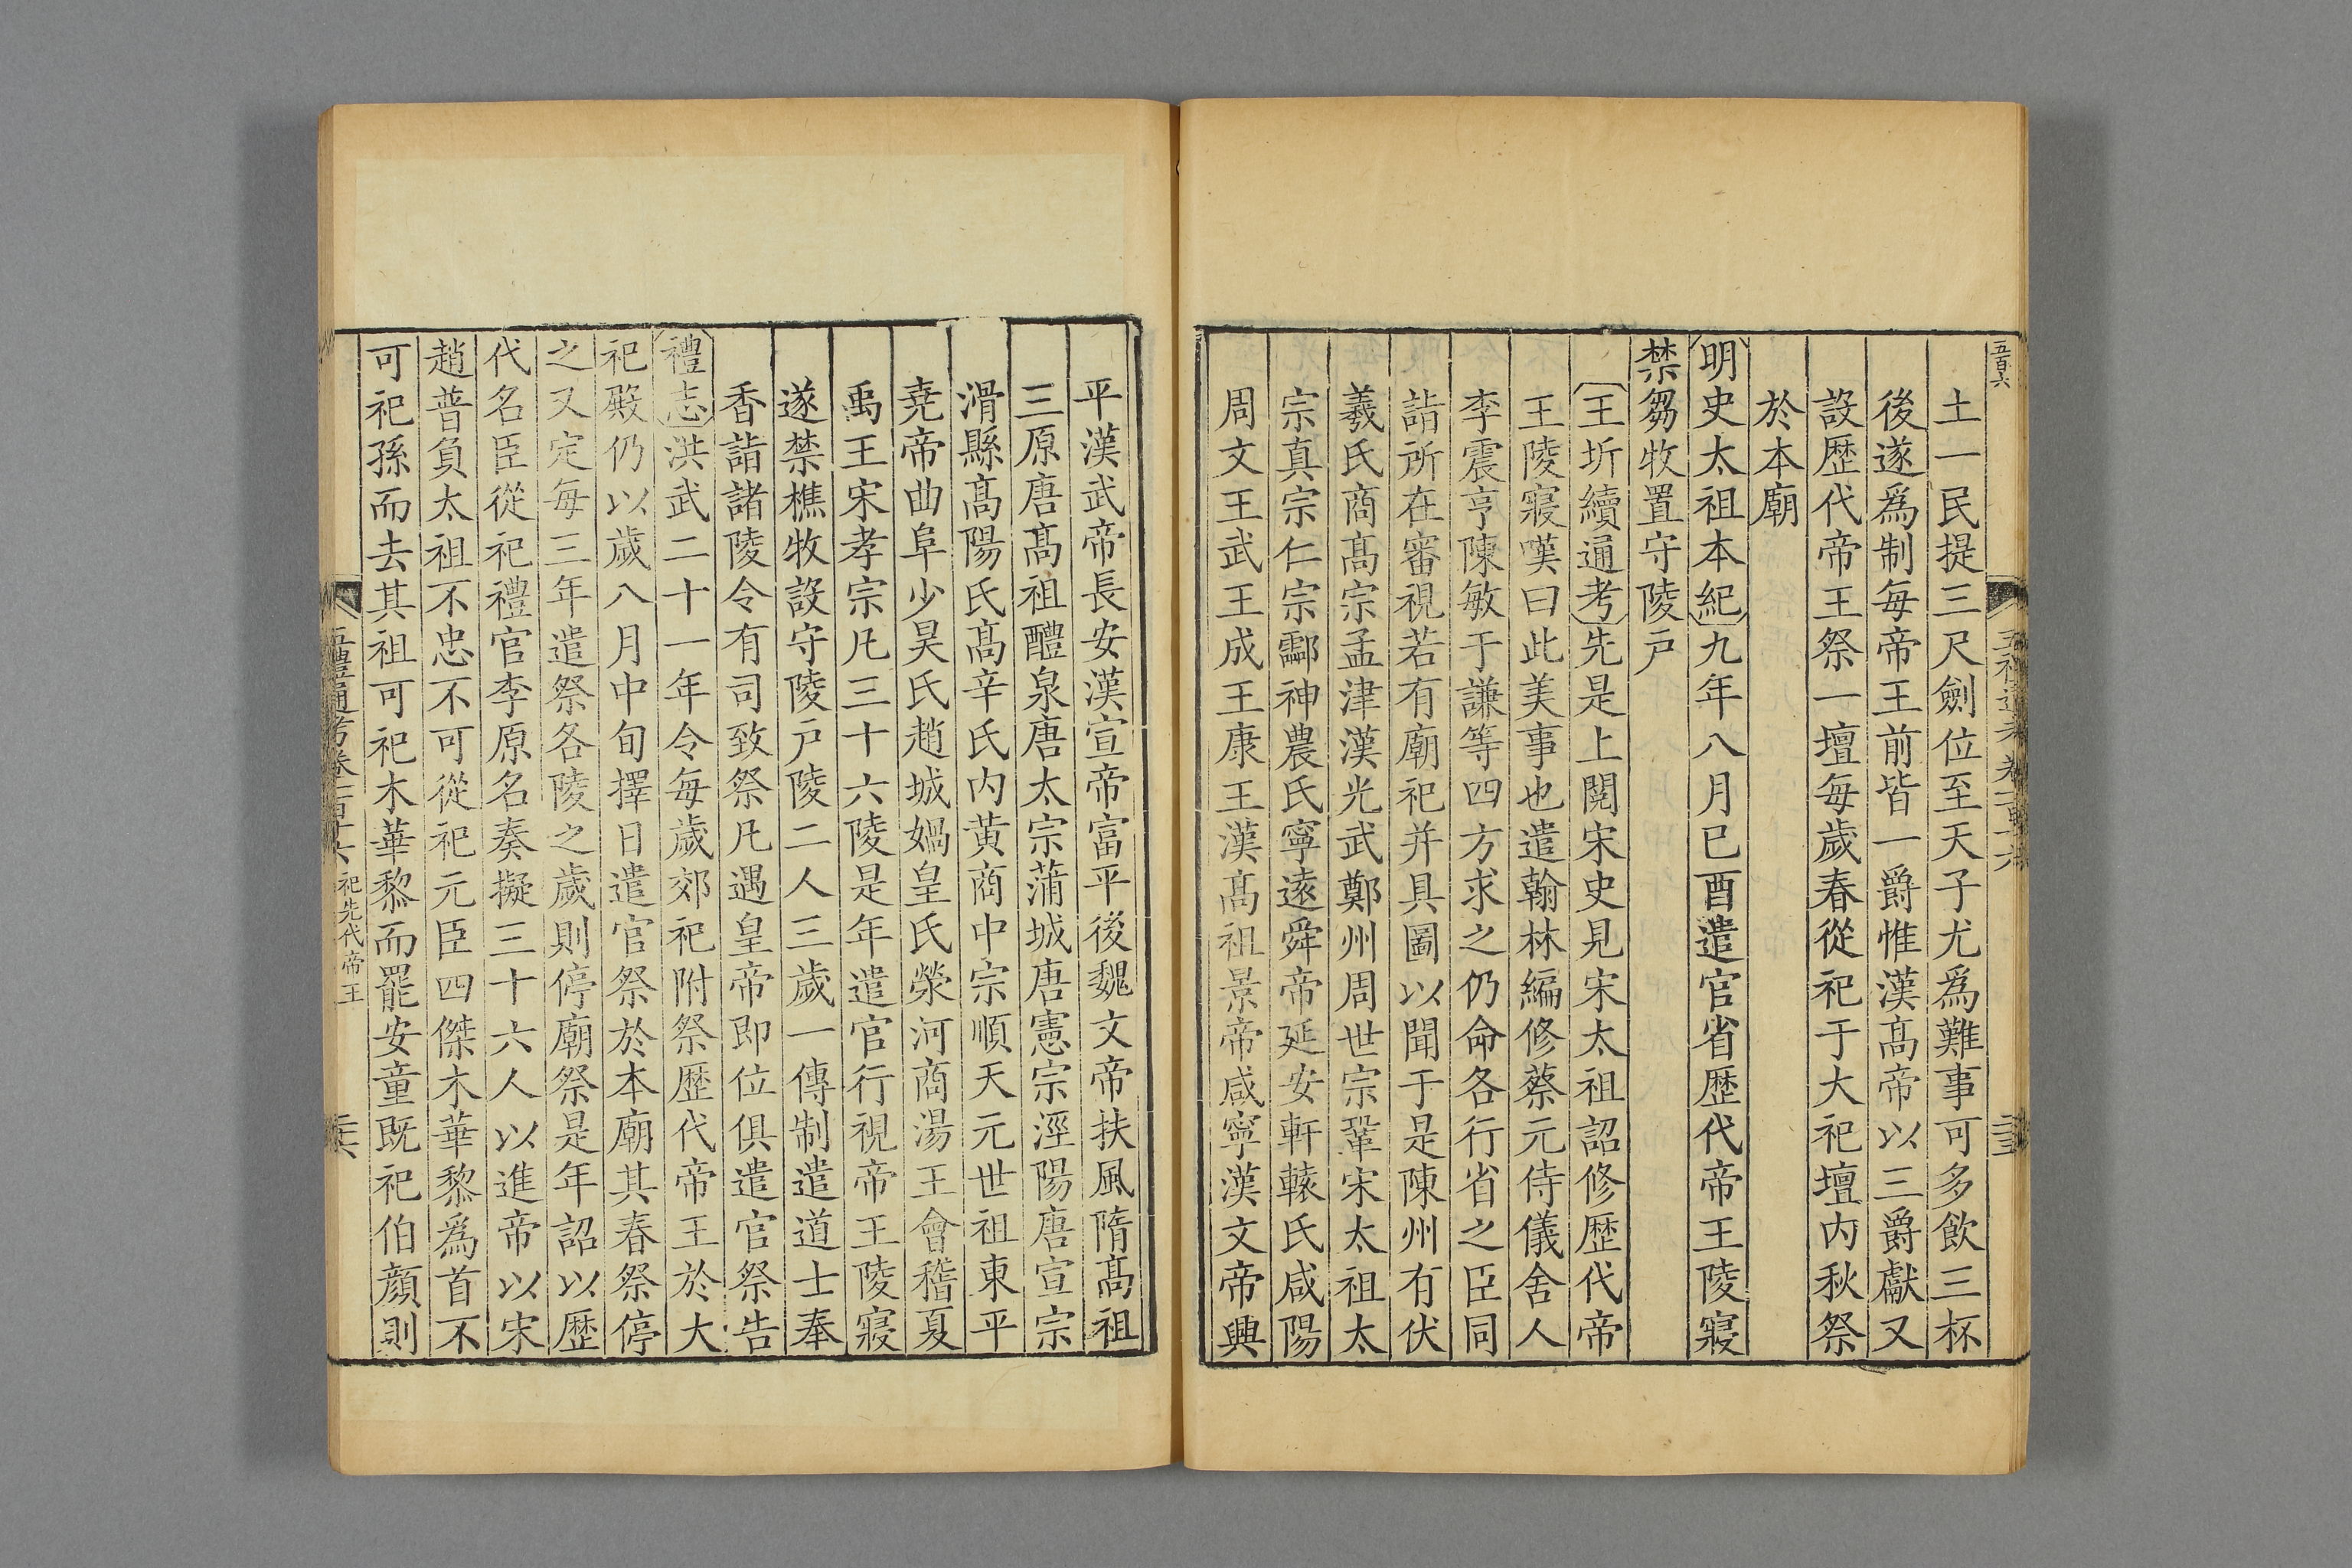 五百六
土一民提三尺劍位至天子尤爲難事可多飲三杯
後遂爲制每帝王前皆一爵惟漢髙帝以三爵獻又
設歷代帝王祭一壇每歲春從祀于大祀壇内秋祭
於本廟
明史太祖本紀九年八月已酉遣官省歷代帝王陵寢
禁芻牧置守陵戸
王圻續通考先是上閱宋史見宋太祖詔修歷代帝
王陵寢嘆曰此美事也遣翰林編修蔡元侍儀舍人
李震亨陳敏于謙等四方求之仍命各行省之臣同
詣所在審視若有廟祀并具圖以聞于是陳州有伏
羲氏商髙宗孟津漢光武鄭州周世宗鞏宋太祖太
宗真宗仁宗酃神農氏寧遠舜帝延安軒轅氏咸陽
周文王武王成王康王漢髙祖景帝咸寧漢文帝興
平漢武帝長安漢宣帝富平後魏文帝扶風隋髙祖
三原唐髙祖醴泉唐太宗蒲城唐憲宗涇陽唐宣宗
滑縣髙陽氏髙辛氏内黄商中宗順天元世祖東平
堯帝曲阜少昊氏趙城媧皇氏滎河商湯王會稽夏
禹王宋孝宗凡三十六陵是年遣官行視帝王陵寢
遂禁樵牧設守陵戸陵二人三歲一傳制遣道士奉
香詣諸陵令有司致祭凡遇皇帝即位俱遣官祭告
禮志洪武二十一年令每歲郊祀附祭歷代帝王於大
祀殿仍以歲八月中旬擇日遣官祭於本廟其春祭停
之又定每三年遣祭各陵之歲則停廟祭是年詔以歷
代名臣從祀禮官李原名奏擬三十六人以進帝以宋
趙普負太祖不忠不可從祀元臣四傑木華黎爲首不
可祀孫而去其祖可祀木華黎而罷安童既祀伯顔則
五禮通考卷一百十六 祀先代帝王